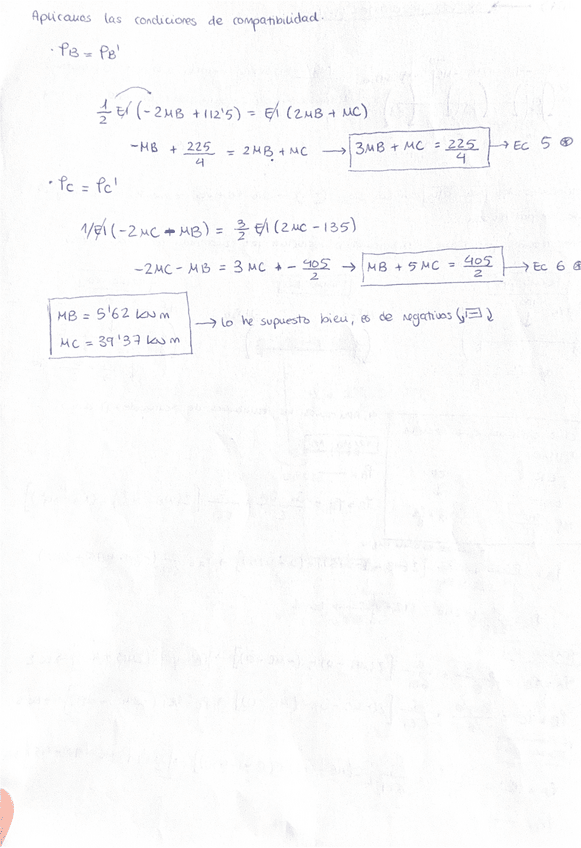 Aplicamos las condiciones de compatibilidad.
· φB = φB'
1/2 EI (-2MB + 112'5) = EI (2MB + MC)
-MB + 225/4 = 2MB + MC → 3MB + MC = 225/4 → EC 5
· φC = φC'
1/EI (-2MC - MB) = 3/2 EI (2MC - 135)
-2MC - MB = 3MC + - 405/2 → MB + 5MC = 405/2 → EC 6
MB = 5'62 kN m
MC = 39'37 kN m
→ lo he supuesto bien, es de negativos